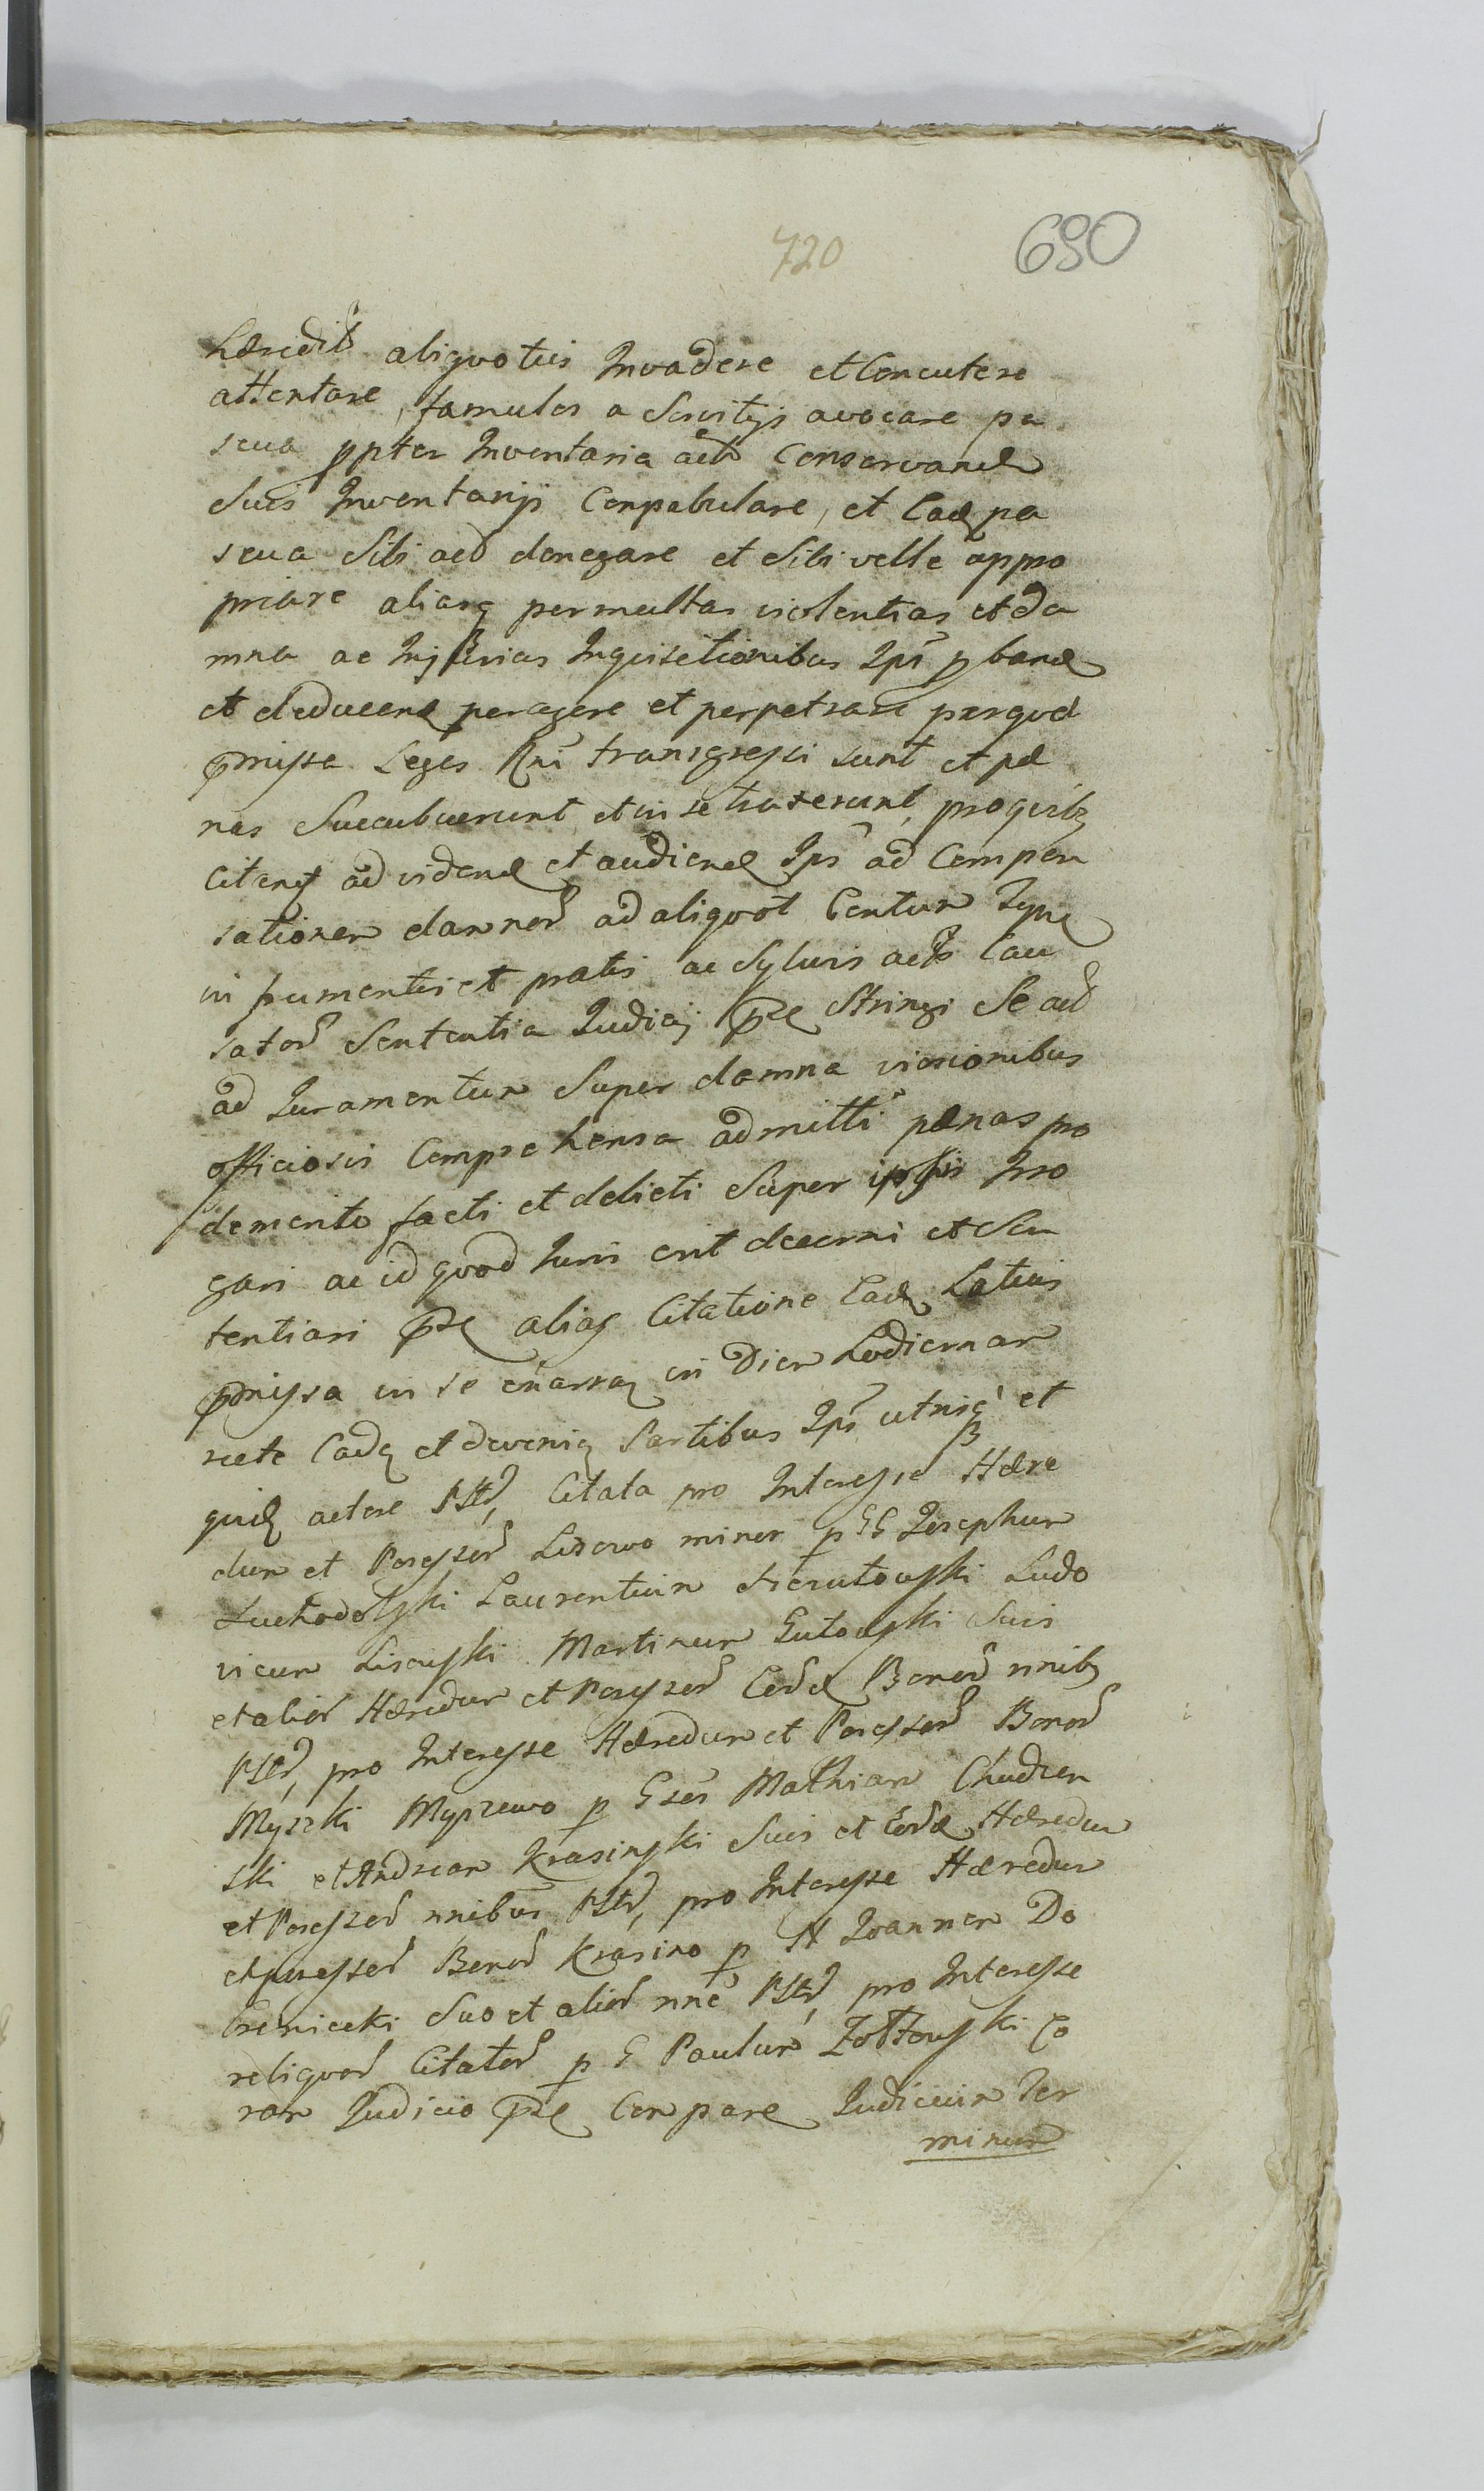 720 690
hæredit aliquoties Invadere et Concutere
attentare, famulos a Servitijs avocare pa
scua ppter Inventaria act Conservand
Suis Inventarijs Conpabulare, et Ead pa
scua Sibi act denegare et Sibi velle appro
priare aliasq permultas violentias et da
mna ac Injurias Inquisitionibus Ips pband
et deducend peragere et perpetrare per quod
pmissa Leges Rni transgressi sunt et pæ
nas Succubuerunt et in se traxerunt, pro quibz
Citant ad vidend et audiend Ips ad Compen
sationem damnor ad aliquot Centum
in frumentis et pratis ac Sylvis act Cau
sator Sententia Judicij pse Stringi Se act
ad Juramentum Super damna visionibus
officiosis Comprehensa admitti pænas pro
demerito facti et delicti Super ipsis Irro
gari ac id quod Juris erit decerni et Sen
tentiari pse alias Citatione Ead Latius
pmissa in se enarrat in Diem hodiernam
recte Cadt et devenit Partibus Ips utrisq et
quid actore Citata pro Interesse Hære
dum et Possessor Lisowo minor p GG Josephum
Suchodolski Laurentium Ludo
vicum Lisowski Martinum Gutowski Suis
et alior Hæredum et Possessor Eord Bonor nnibz
pro Interesse Hæredum et Possessor Bonor
Myszki p Gsos Mathiam Chudzen
ski et Andream Krasinski Suis et Eord Hæredum
et Possessor nnibus pro Interesse Hæredum
et possessor Bonor Krasino p N Joannem Do
brzeniecki Suo et alior nne pro Interesse
reliquor Citator p G Paulum Zołtowski Co
ram Judicio pse Conparen Judicium Ter
minum